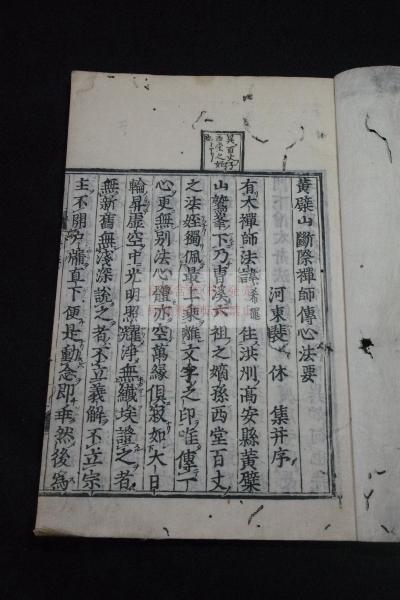 黄檗山斷際禪師傳心法要
河東裴 休 集并序
有大禪師法諱希運住洪州高安縣黄檗
山鷲峯下乃曹溪六祖之嫡孫西堂百丈
之法姪獨佩最上乘離文字之印唯傳一
心更無别法心體亦空萬緣俱寂如大日
輪昇虚空中光明照耀淨無纖埃證之者
無新舊無淺深說之者不立義解不立宗
主不開户牖直下便是動念即乖然後爲